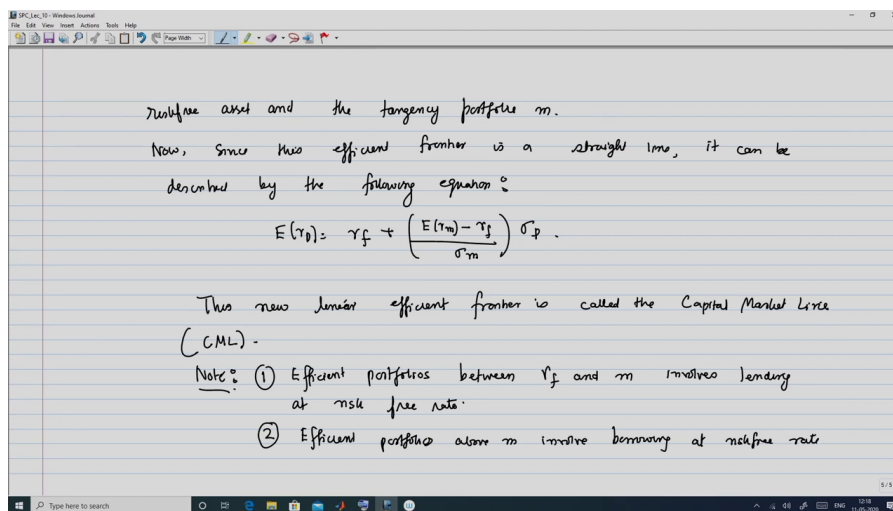 SPC_Lec_10 - Windows Journal
File Edit View Insert Actions Tools Help
Page Width
riskfree asset and the tangency portfolio m.
Now, since this efficient frontier is a straight line, it can be
described by the following equation:
E(rp) = rf + (E(rm) - rf / σm) σp.
This new linear efficient frontier is called the Capital Market Line
(CML).
Note: ① Efficient portfolios between rf and m involves lending
at risk free rate.
② Efficient portfolios above m involve borrowing at riskfree rate
5/5
Type here to search
ENG
12:18
11-05-2020